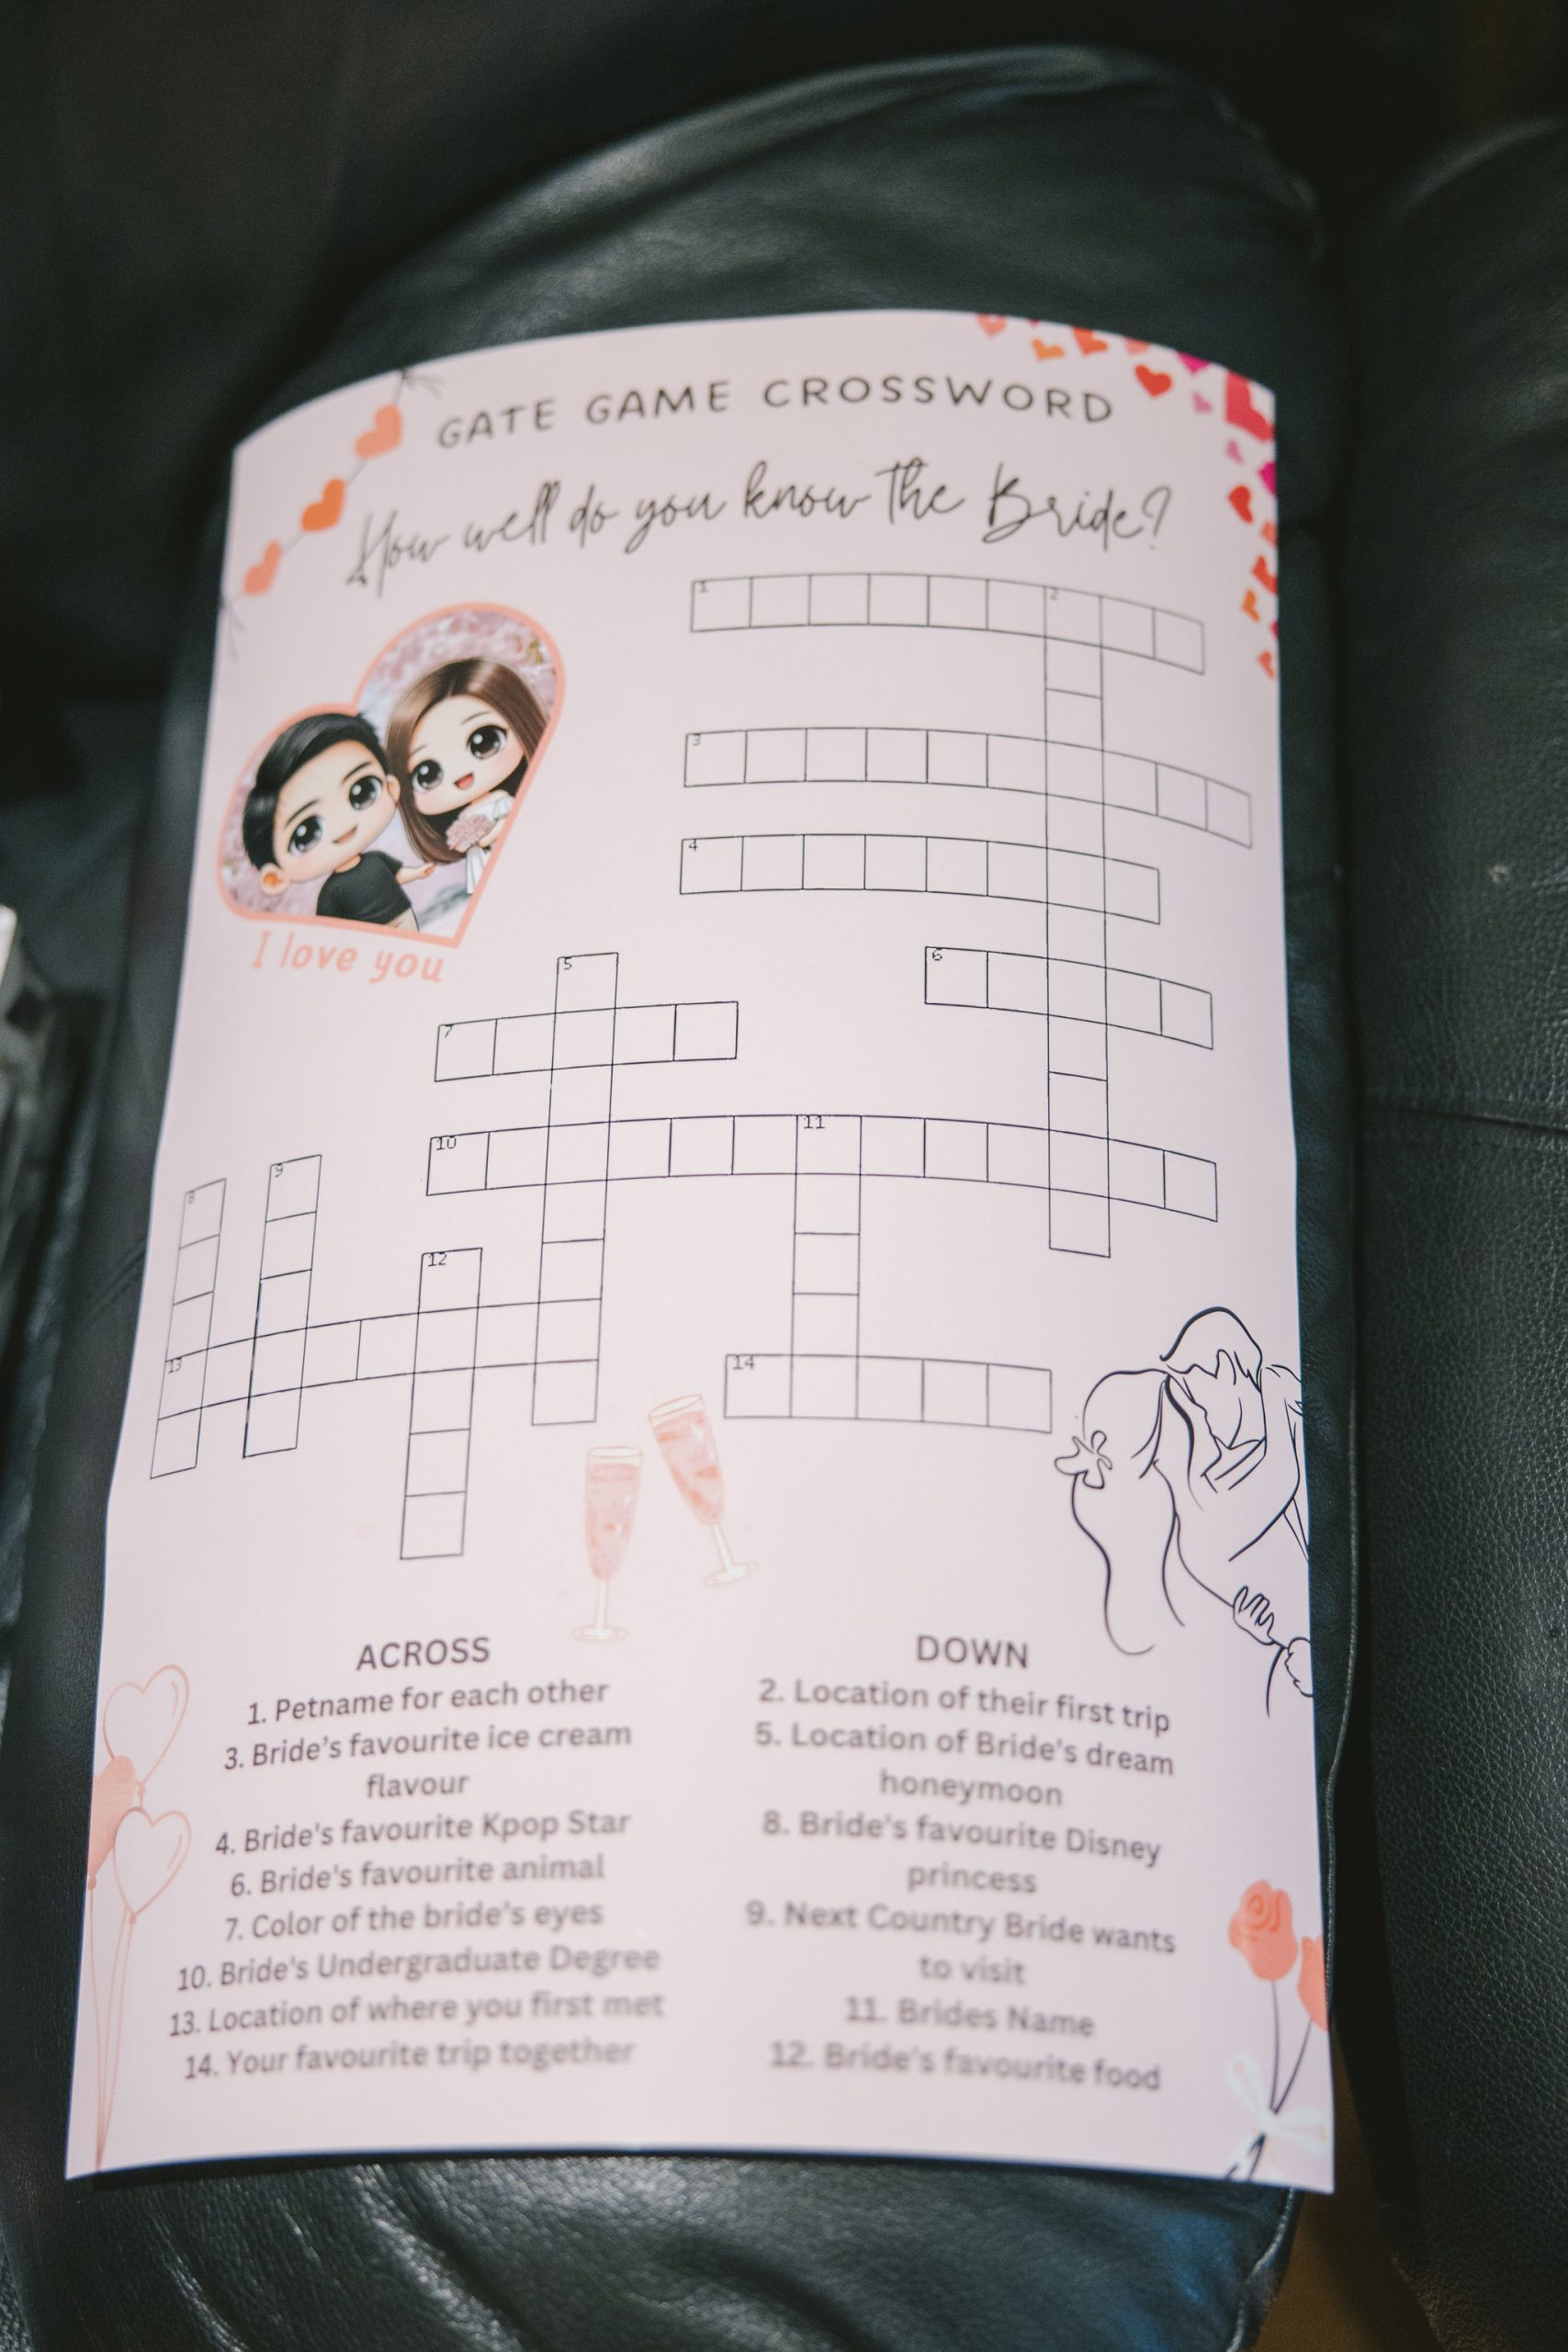 GATE GAME CROSSWORD
How well do you know the Bride?
I love you
1
2
3
4
5
6
7
8
9
10
11
12
13
14
ACROSS
1. Petname for each other
3. Bride's favourite ice cream
flavour
4. Bride's favourite Kpop Star
6. Bride's favourite animal
7. Color of the bride's eyes
10. Bride's Undergraduate Degree
13. Location of where you first met
14. Your favourite trip together
DOWN
2. Location of their first trip
5. Location of Bride's dream
honeymoon
8. Bride's favourite Disney
princess
9. Next Country Bride wants
to visit
11. Brides Name
12. Bride's favourite food